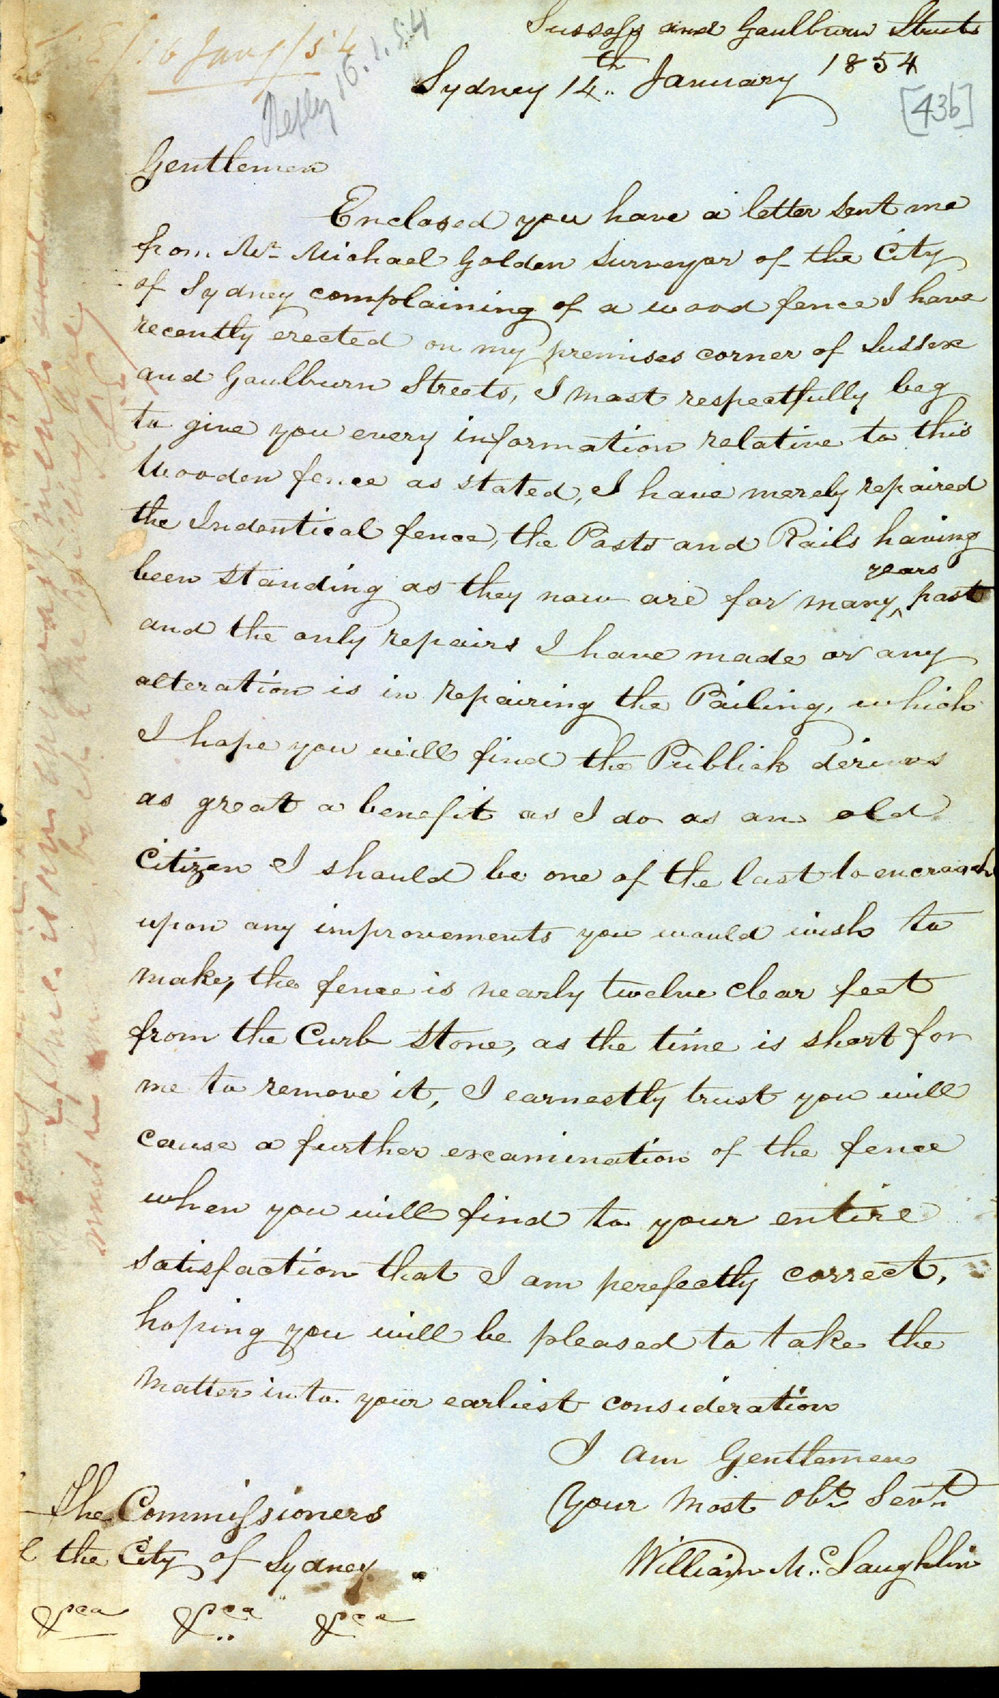 Sussex and Gaulburn Streets
Sydney 14th January 1854
16 Jany /54
Reply 16.1.54
[436]
Gentlemen
Enclosed you have a letter sent me
from Mr Michael Golden Surveyor of the City
of Sydney complaining of a wood fence I have
recently erected on my premises corner of Sussex
and Gaulburn Streets, I most respectfully beg
to give you every information relative to this
Wooden fence as stated, I have merely repaired
the Indentical fence, the Posts and Rails having
been standing as they now are for many years past
and the only repairs I have made or any
alteration is in repairing the Pailing, which
I hope you will find the Publick derives
as great a benefit as I do as an old
Citizen I should be one of the last to encroach
upon any improvements you would wish to
make, the fence is nearly twelve clear feet
from the Curb Stone, as the time is short for
me to remove it, I earnestly trust you will
cause a further examination of the fence
when you will find to your entire
satisfaction that I am perefectly correct,
hoping you will be pleased to take the
Matter into your earliest consideration
I am Gentlemen
Your Most Obt Servt
William McLaughlin
The Commissioners
the City of Sydney
&ca &ca &ca